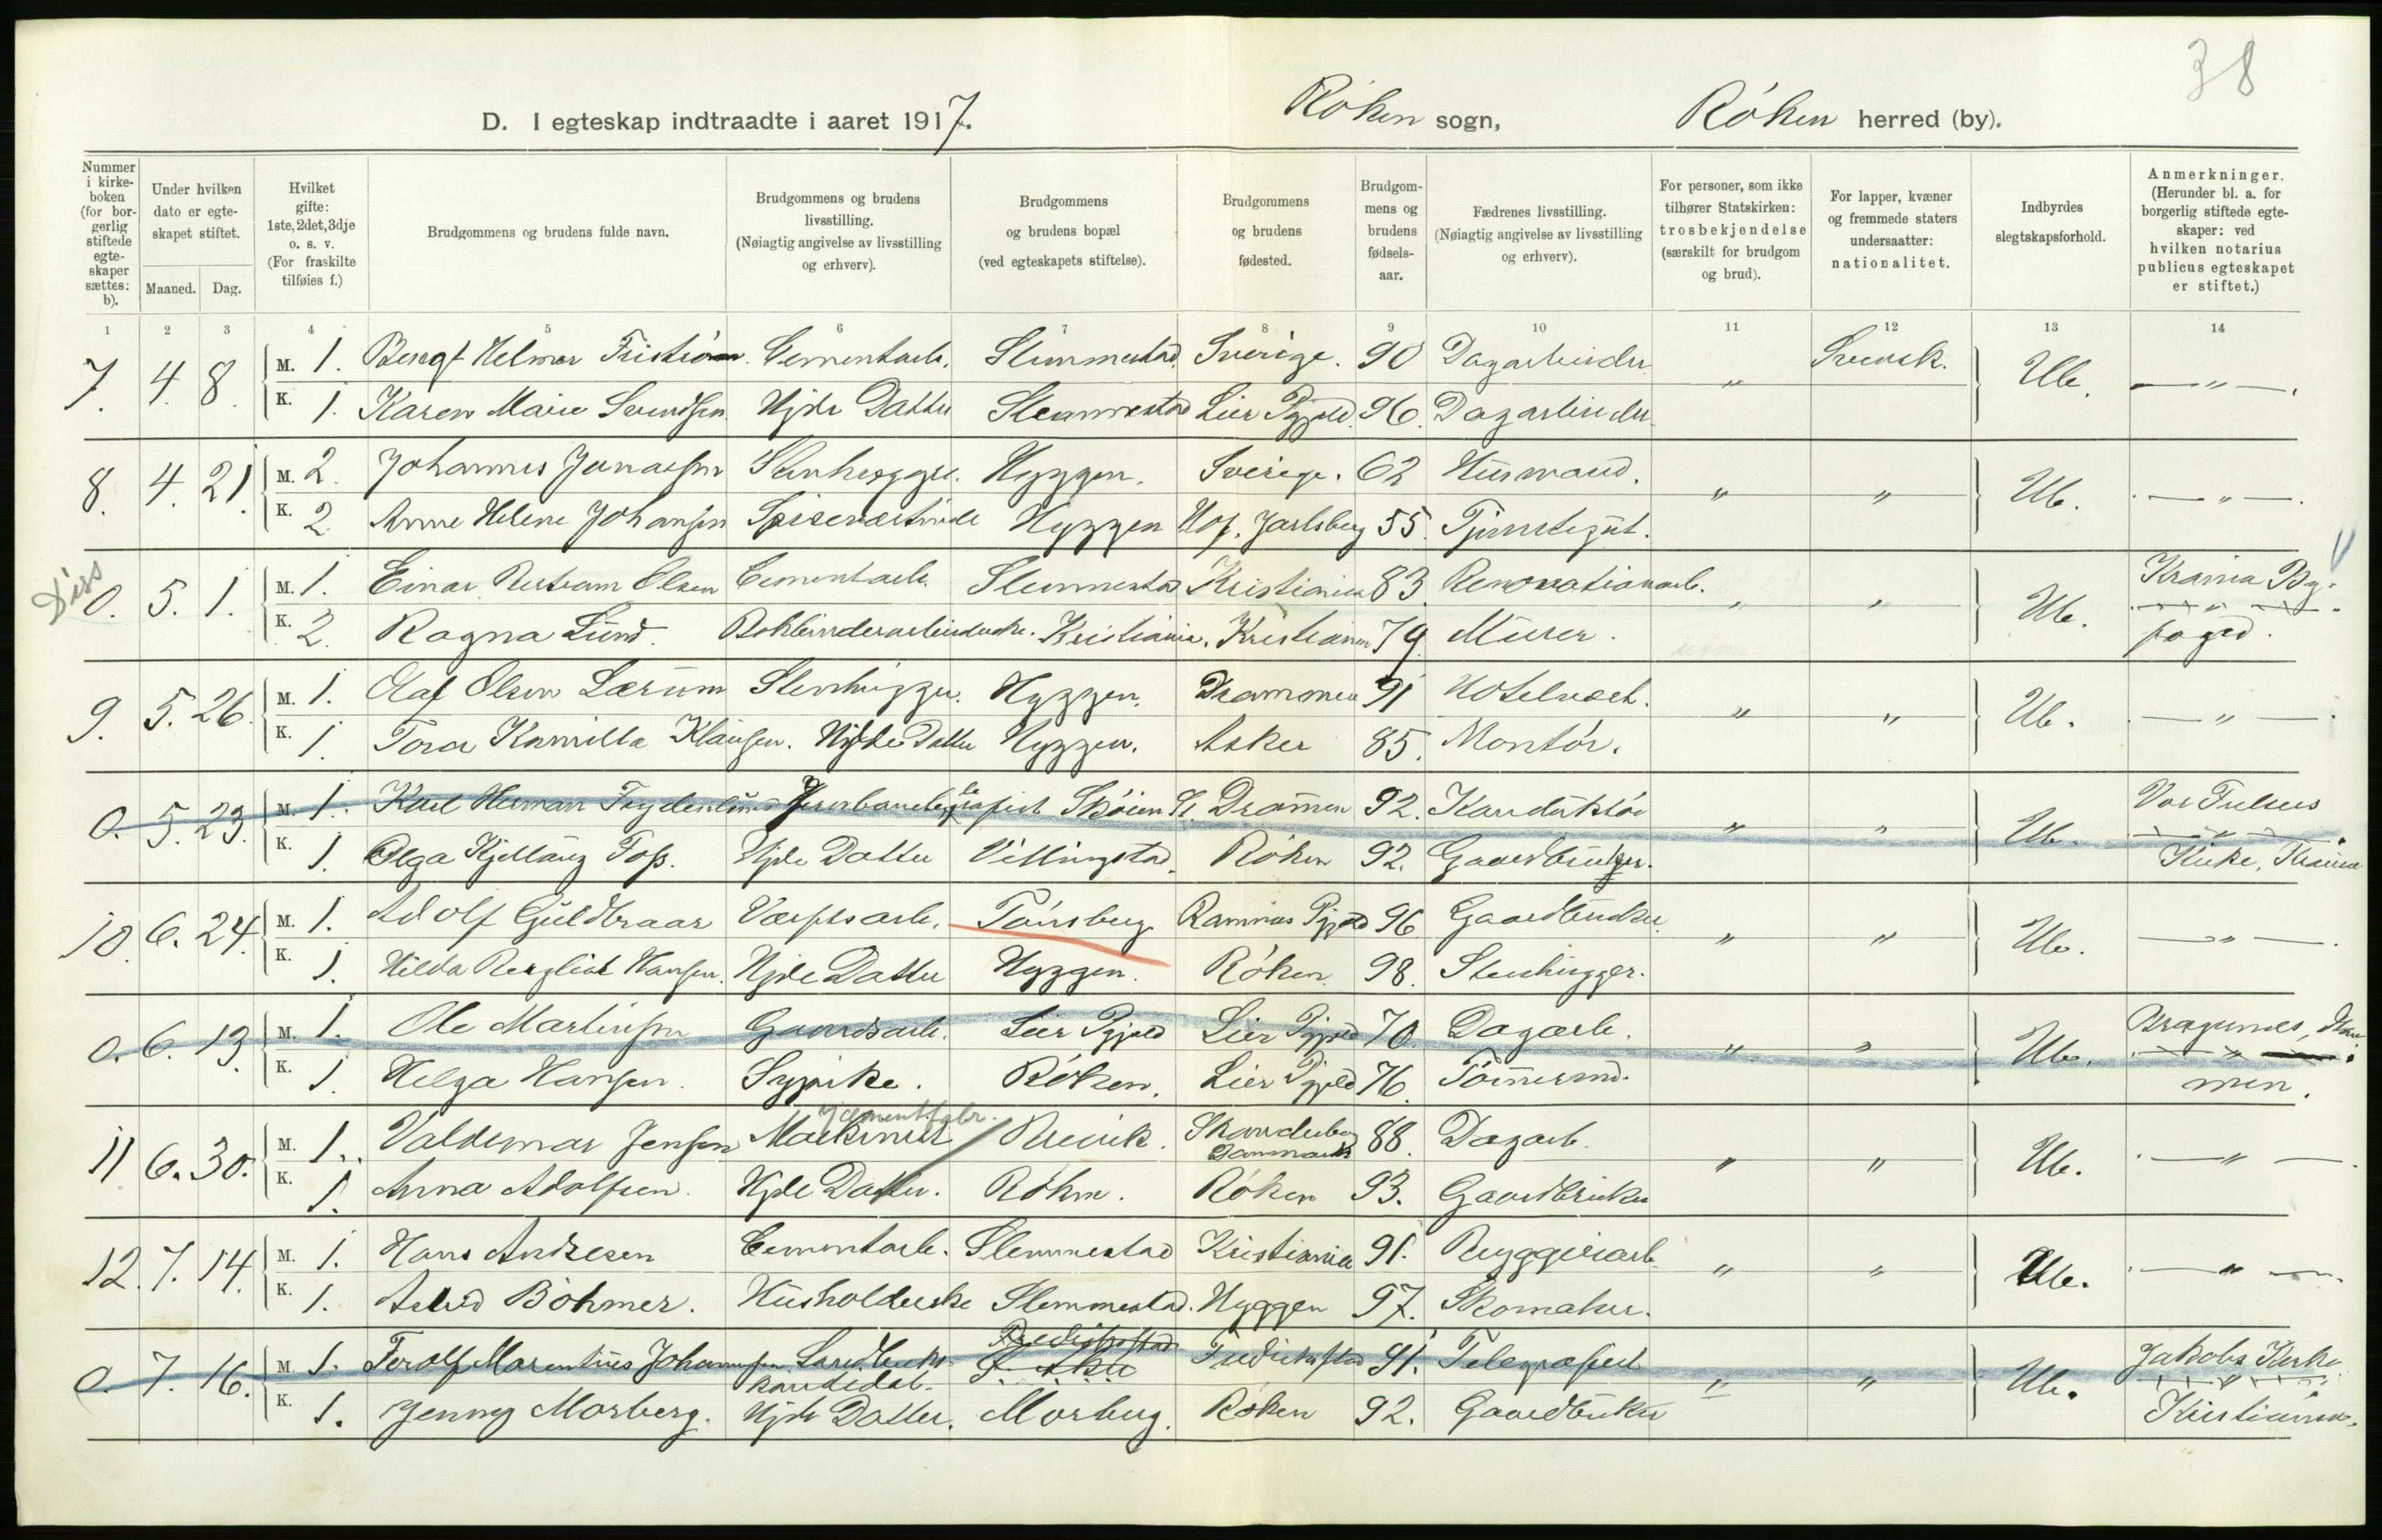 38
D. I egteskap indtraadte i aaret 1917. Røken sogn, Røken herred (by).
Nummer i kirke-boken (for bor-gerlig stiftede egte-skaper sættes: b).
Under hvilken dato er egte-skapet stiftet.
Maaned. Dag.
Hvilket gifte: 1ste, 2det, 3dje o. s. v. (For fraskilte tilføies f.)
Brudgommens og brudens fulde navn.
Brudgommens og brudens livsstilling. (Nøiagtig angivelse av livsstilling og erhverv).
Brudgommens og brudens bopæl (ved egteskapets stiftelse).
Brudgommens og brudens fødested.
Brudgom-mens og brudens fødsels-aar.
Fædrenes livsstilling. (Nøiagtig angivelse av livsstilling og erhverv).
For personer, som ikke tilhører Statskirken: trosbekjendelse (særskilt for brudgom og brud).
For lapper, kvæner og fremmede staters undersaatter: nationalitet.
Indbyrdes slegtskapsforhold.
Anmerkninger. (Herunder bl. a. for borgerlig stiftede egte-skaper: ved hvilken notarius publicus egteskapet er stiftet.)
1 2 3 4 5 6 7 8 9 10 11 12 13 14
7. 4. 8. M. 1. Bengt Helmer Friström. Cementarb. Slemmestad. Sverige. 90 Dagarbeider " Svensk. Ub. — " —.
K. 1. Karen Marie Svendsen Hjde Datter Slemmestad Lier Pgjeld. 96. Dagarbeider
8. 4. 21. M. 2. Johannes Jonassen Stenhugger. Hyggen. Sverige. 62 Husmand. " " Ub. — " —.
K. 2. Anne Helene Johansen Spisevertinde Hyggen Hof. Jarlsberg 55. Tjenstegut.
Diss
0. 5. 1. M. 1. Einar Bertram Olsen Cementarb. Slemmestad Kristiania 83. Renovationarb. " " Ub. Krania By-
K. 2. Ragna Lund. Bokbinderarbeiderske. Kristiania. Kristiania 79. Murer. foged.
9. 5. 26. M. 1. Olaf Olsen Lærum Stenhugger. Hyggen. Drammen 91 Hotelvert. " " Ub. — " —.
K. 1. Tora Kamilla Klausen. Hjde Datter Hyggen. Asker 85. Montör.
0. 5. 23. M. 1. Karl Herman Frydenlund Jernbanetelegrafist Skøien St. Drammen 92. Konduktör " " Ub. Vor Frelsers
K. 1. Olga Kjellaug Foss. Hjde Datter Villingstad. Røken 92. Gaardbruker. Kirke, Krania
10. 6. 24. M. 1. Adolf Guldbraar Værftsarb. Tønsberg Ramnæs Pgjeld 96 Gaardbruker. " " Ub. — " —.
K. 1. Hilda Bergliot Hansen. Hjde Datter Hyggen. Røken. 98. Stenhugger.
0. 6. 13. M. 1. Ole Martinsen Gaardsarb. Lier Pgjeld Lier Pgjeld 70. Dagarb. " " Ub. Bragernes, Dram-
K. 1. Helga Hansen. Sypike. Røken. Lier Pgjeld 76. Tømmermd. men.
Cementfabr.
11 6. 30. M. 1. Valdemar Jensen Maskinist Brevik. Skanderborg Danmark 88. Dagarb. " " Ub. — " —.
K. 1. Anna Adolfsen. Hjde Datter. Røken. Røken 93. Gaardbruker
12. 7. 14. M. 1. Hans Andresen Cementarb. Slemmestad Kristiania 91. Bryggeriarb. " " Ub. — " —.
K. 1. Astrid Böhmer. Husholderske Slemmestad. Hyggen 97. Skomaker.
0. 7. 16. M. 1. Ferolf Marentius Johannesen Landbruks- Fredrikstad Fredrikstad 91. Telegrafist " " Ub. Jakobs Kirke
kandidat.
K. 1. Jenny Morberg. Hjde Datter. Morberg. Røken 92. Gaardbruker Kristiania.